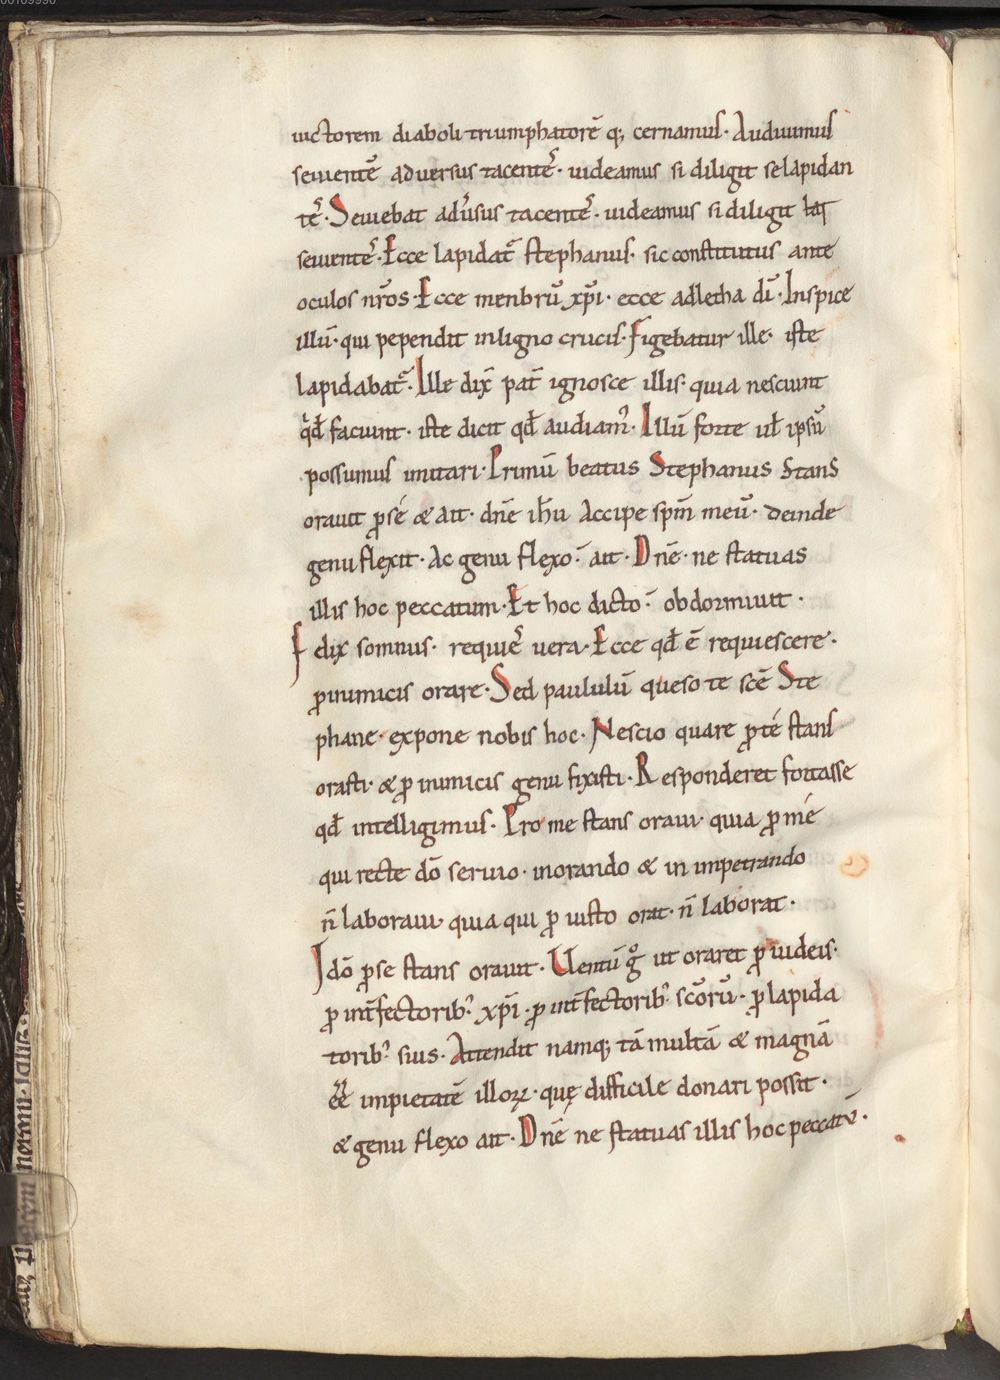 00109990
uictorem diaboli triumphatorē q; cernamus. Audiuimus
seuientē aduersus tacentes. uideamus si diligit se lapidan
tes. Seuiebat adu̓sus tacentes. uideamus si diligit
seuientes. Ecce lapidat᷑ stephanus. sic constitutus ante
oculos nr̄os. Ecce menbrū xp̄i. ecce adletha dī. Inspice
illū. qui pependit in ligno crucis. Figebatur ille. iste
lapidabat᷑. Ille dix̄ pat̄ ignosce illis. quia nesciunt
qd̄ faciunt. iste dicit qd̄ audiam᷒. Illū forte ul̄ ipsū
possumus imitari. Primū beatus Stephanus Stans
orauit ꝓ sé & ait. dn̄e ih̄u Accipe sp̄m meū. deinde
genu flexit. Ac genu flexo. ait. Dn̄e. ne statuas
illis hoc peccatum. Et hoc dicto. obdormiuit.
F elix somnus. requies uera. Ecce qd̄ ē requiescere.
ꝓ inimicis orare. Sed paululū queso te scē Ste
phane. expone nobis hoc. Nescio quare ꝓ té stans
orasti. & ꝓ inimicis genu fixisti. Responderet fortasse
qd̄ intelligimus. Pro me stans oraui. quia ꝓ mé
qui recte dō seruio. in orando & in impetrando
n̄ laboraui. quia qui ꝓ iusto orat. n̄ laborat.
Idō ꝓ se stans orauit. Uentū gͦ ut oraret ꝓ iudeis.
ꝓ int̄fectorib᷒ xp̄i. ꝓ int̄fectorib᷒ scōrū. ꝓ lapida
torib᷒ suis. Attendit namq; tā multā & magnā
ēē impietatē illoꝝ. quę difficile donari possit.
& genu flexo ait. Dn̄e ne statuas illis hoc peccatū.